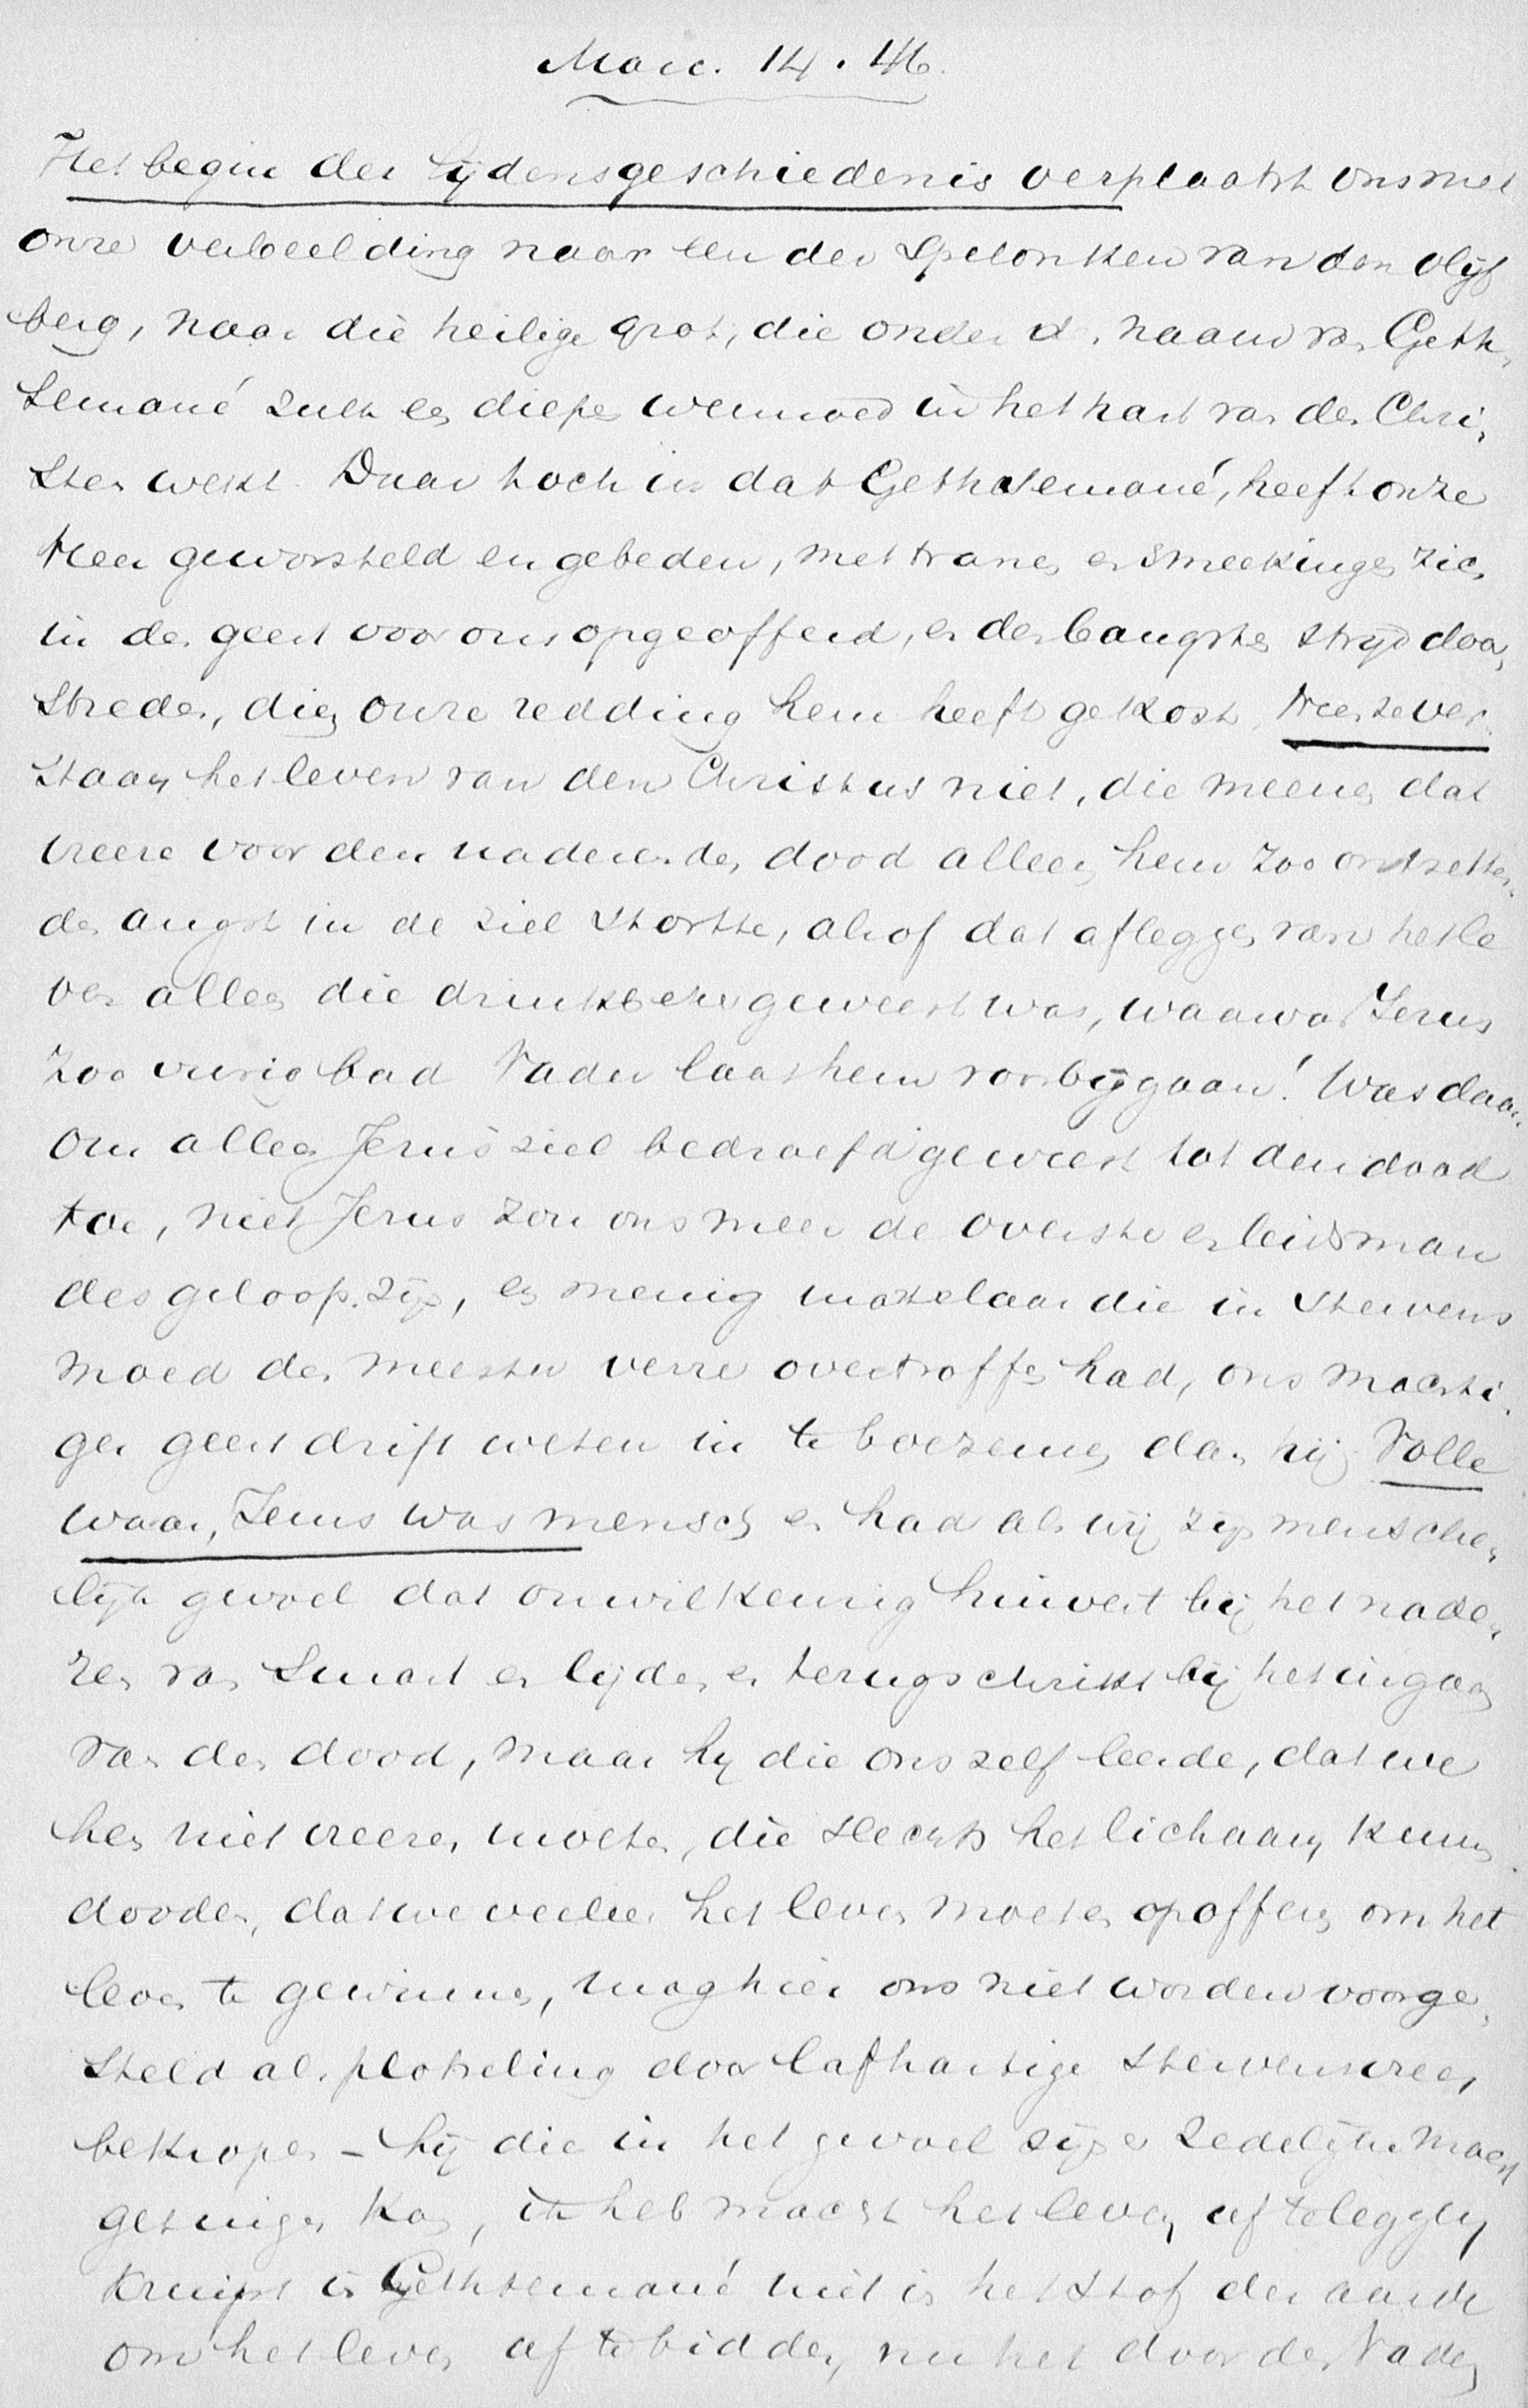 Marc. 14.46.
Het begin der lijdensgeschiedenis verplaatst ons met
onze verbeelding naar een der spelonken van den olijf
berg, naar die heilige grot, die onder d. naam van Geth,
semané zulk een diepen weemoed in het hart van den Chri,
sten wekt. Daar toch in dat Gethsemané, heeft onze
Heer geworsteld en gebeden, met tranen en smeekingen zich
in den geest voor ons opgeofferd, en den bangsten strijd door,
streden, dien onze redding hem heeft gekost. Neen ze ver,
staan het leven van den Christus niet, die meenen dat
vreeze voor den naderenden dood alleen hem zoo ontzetten,
den angst in de ziel stortte, alsof dat afleggen van het le
ven alleen die drinkbeker geweest was, waarvan Jezus
zoo vurig bad Vader laat hem voorbijgaan! Was daar,
om alleen Jezus' ziel bedroefd geweest tot den dood
toe, niet Jezus zou ons meer de overste en leidsman
des geloofs zijn, en menig martelaar die in stervens
moed den meester verre overtroffen had, ons machti,
ger geestdrift weten in te boezemen dan hij. Volle
waar, Jezus was mensch en had als wij zijn mensche,
lijk gevoel dat onwillekeurig huivert bij het nade,
ren van smart en lijden en terugschrikt bij het ingaan
van den dood, maar hij die ons zelf leerde, dat we
hen niet vreezen moeten, die slechts het lichaam kunnen
dooden, dat we veeleer het leven moeten opofferen om het
leven te gewinnen, mag hier ons niet worden voorge,
steld als plotseling door lafhartige stervensvrees
bekropen – hij die in het gevoel zijner zedelijke macht
getuigen kon, ik heb macht het leven af te leggen
kruipt in Gethsemané niet in het stof der aarde
om het leven af te bidden, nu het door den Vader